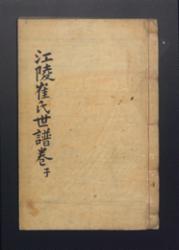 江陵崔氏世譜卷子